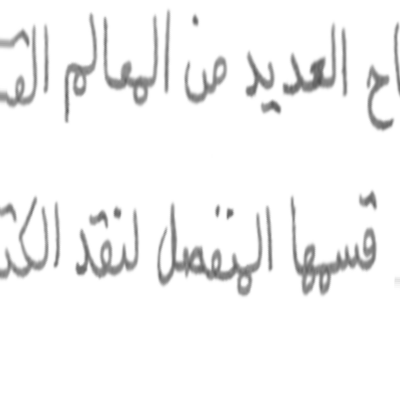 العديد من المعالم
قسمها المنفصل لنقد